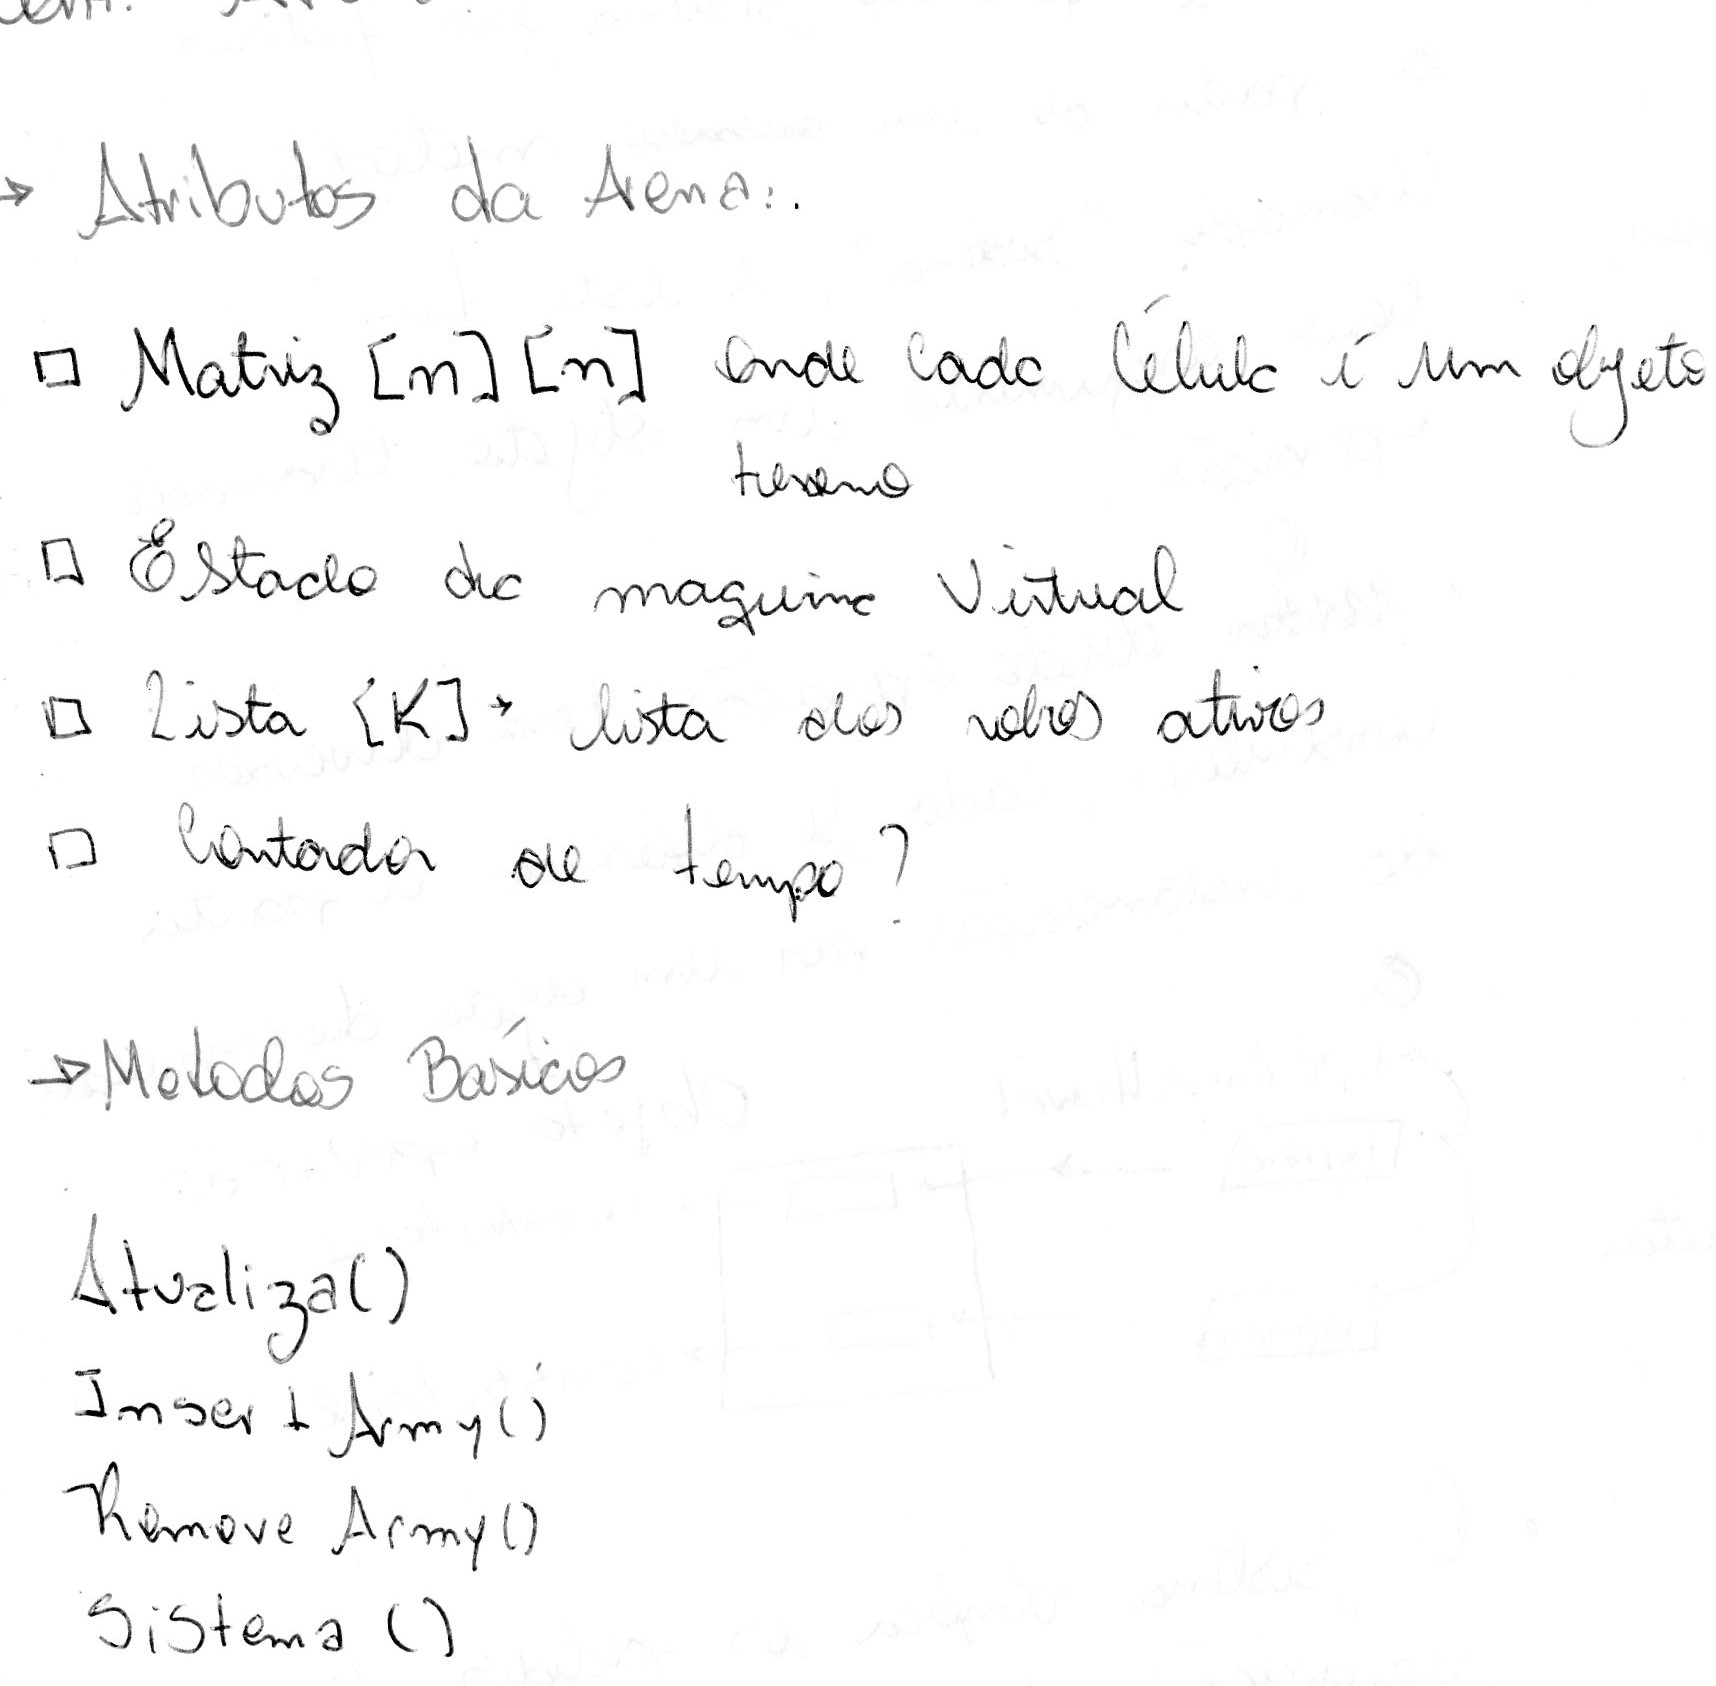 → Atributos da Arena:.
□ Matriz [n][n] onde cada Célula é um objeto
terreno
□ Estado da maquina Virtual
□ Lista [K] → lista dos robos ativos
□ Contador de tempo?
→ Metodos Básicos
Atualiza()
Insert Army()
Remove Army()
Sistema ()